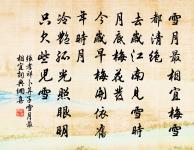 雪月最相宜梅雪
都清絕
去歲江南見雪時
月底梅花發
今歲早梅開依舊
年時月
冷艷孤光照眼明
只欠些兒雪
張孝祥卜算子雪月最
相宜詞典網集